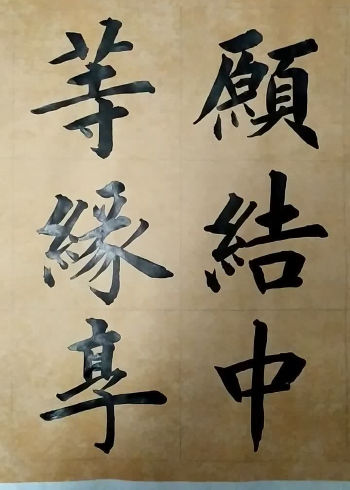 願結中
等緣享